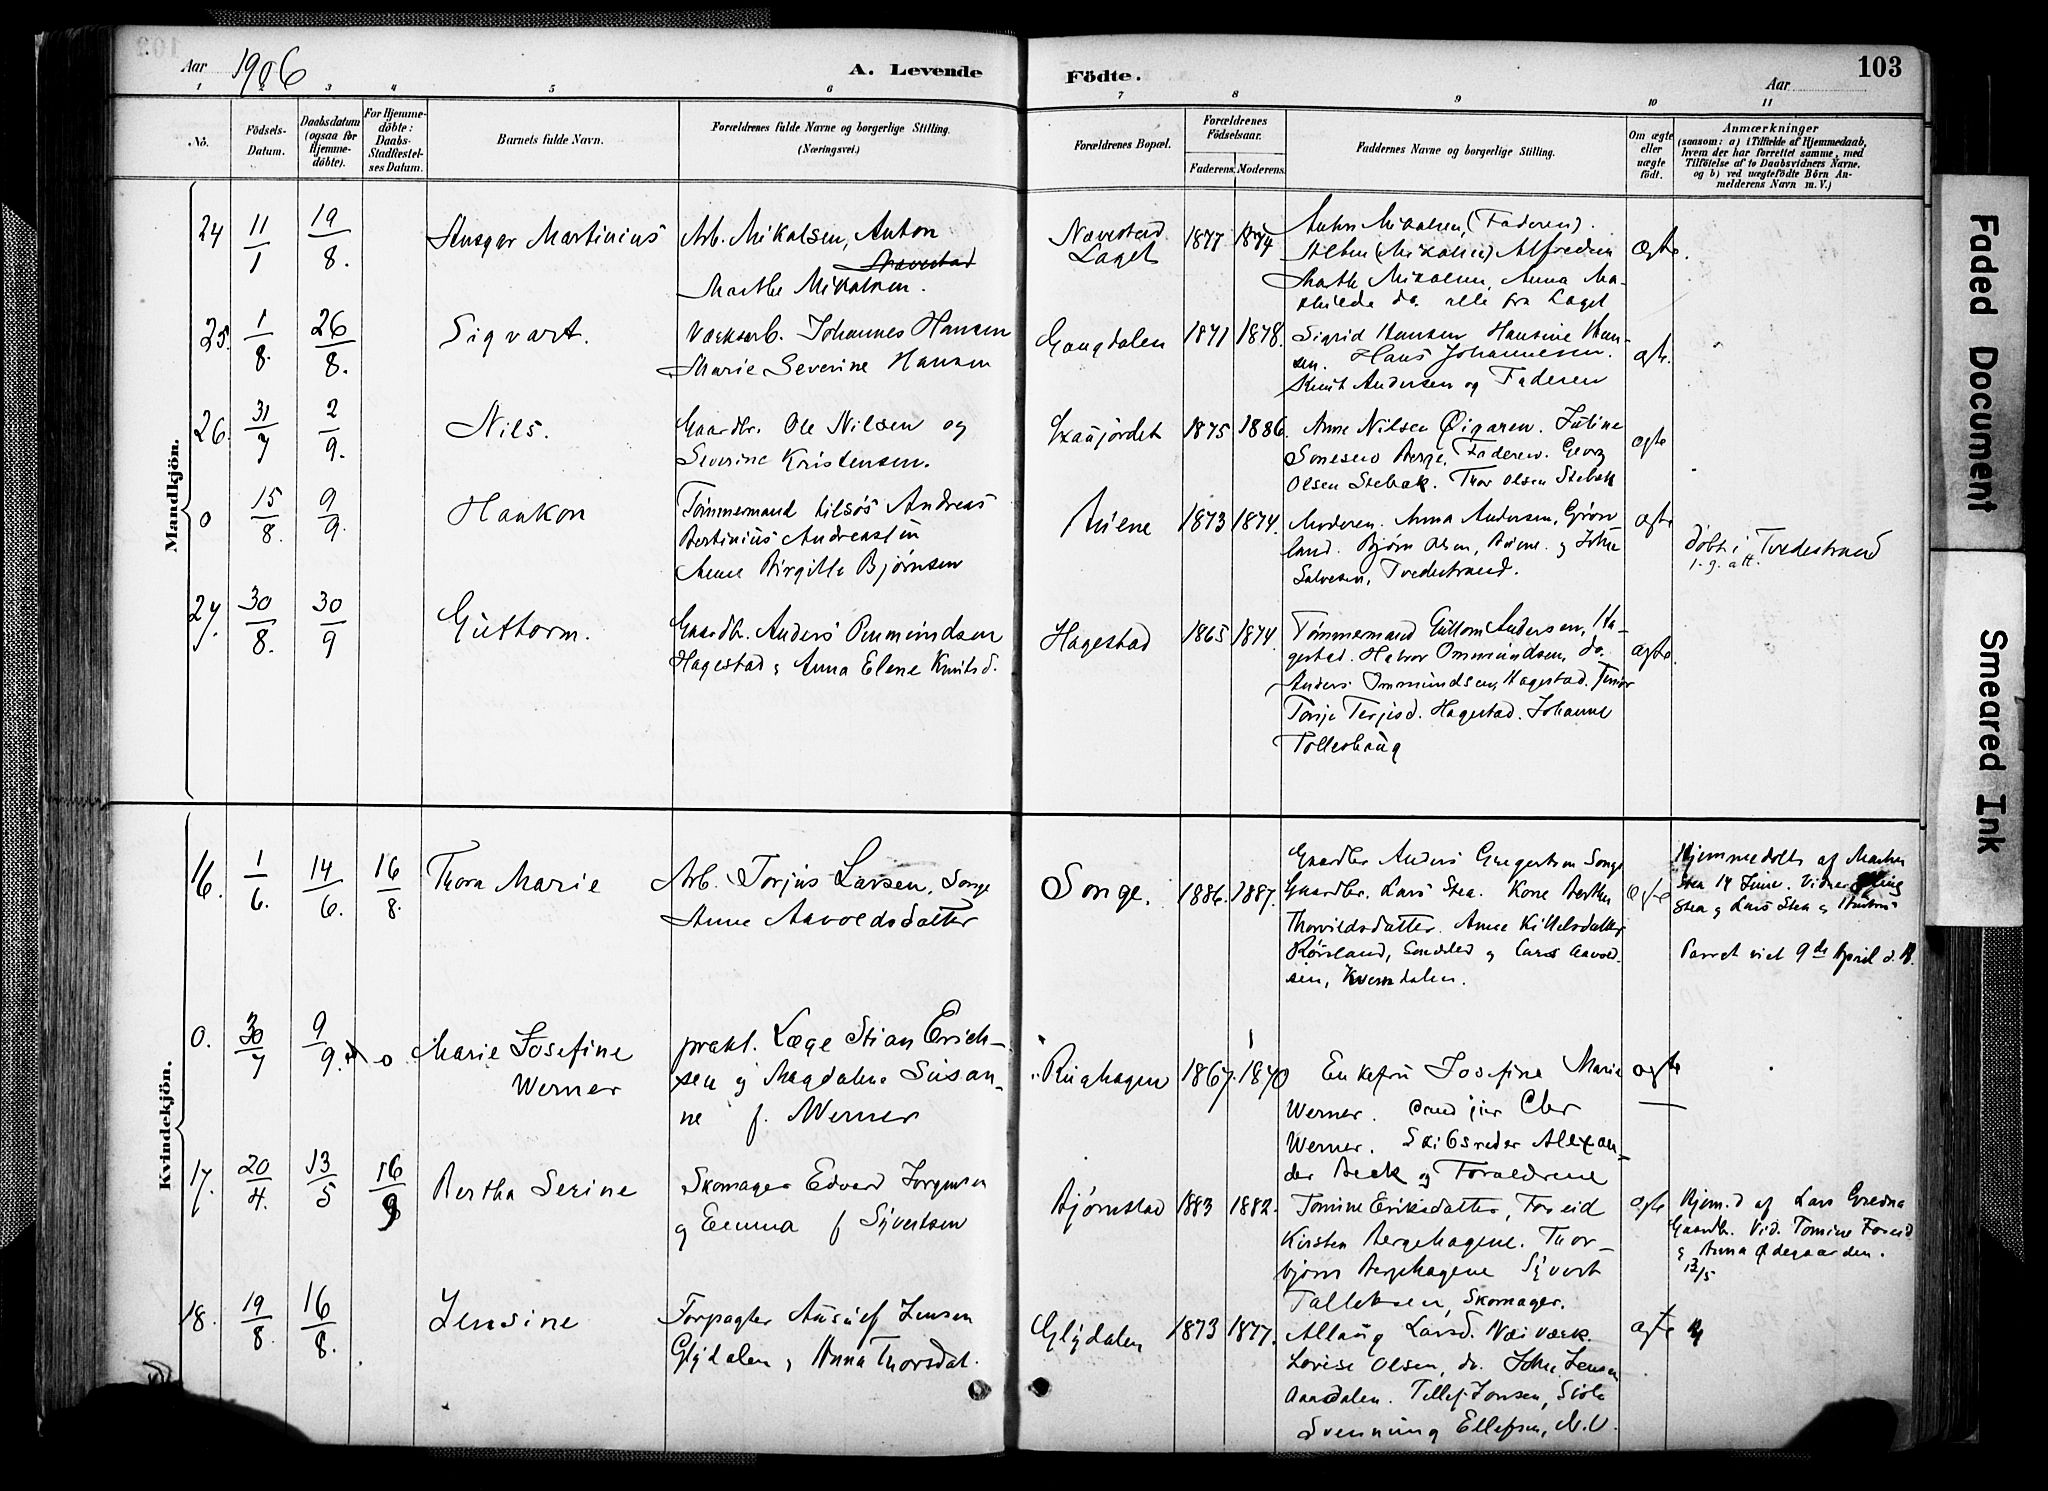 103
Aar 1906
A. Levende Födte.
Aar
1 2 3 4 5 6 7 8 9 10 11
No.
Födsels-Datum.
Daabsdatum (ogsaa for Hjemme-döbte).
For Hjemme-döbte: Daabs-Stadfæstel-ses Datum.
Barnets fulde Navn.
Forældrenes fulde Navne og borgerlige Stilling. (Næringsvei.)
Forældrenes Bopæl.
Forældrenes Födselsaar.
Faderens. Moderens.
Faddernes Navne og borgerlige Stilling.
Om ægte eller uægte födt.
Anmærkninger
(saasom: a) i Tilfælde af Hjemmedaab,
hvem der har forrettet samme, med
Tilföielse af to Daabsvidners Navne.
og b) ved uægtefödte Börn An-
melderens Navn m. V.)
Mandkjön.
24 11/1 19/8. Ansgar Martinius
Arb. Mikalsen, Anton
Marthe Mikalsen.
Næverstad
Laget
1877 1874
Anton Mikalsen, (Faderen).
(Mikalsen) Alfredsen
Marthe Mikalsen, Anna Ma-
thilde do. alle fra Laget
ægte.
25. 1/8. 26/8. Sigvart.
Værksarb. Johannes Hansen
Marie Severine Hansen
Gougdalen
1871 1878.
Sigrid Hansen, Hansine Han-
sen. Hans Johannesen.
Knut Andersen og Faderen
ægte.
26. 31/7 2/9. Nils.
Gaardbr. Ole Nilsen og
Severine Kristensen.
1875 1886.
Anne Nilsen Øigaren. Juline
Berge, Faderen. Georg
Olsen Stebak. Thor Olsen Stebak
ægte
0 15/8. 9/9. Haakon
Tømmermand tilsøs Andreas
Bertinius Andreassen
Anne Birgitte Bjørnsen
1873 1874.
Moderen. Anna Andersen, Grøn
land. Bjørn Olsen, og Johne
Salvesen, Tvedestrand.
ægte
døbt i Tvedestrand
1-9. att.
27. 30/8. 30/9 Guttorm.
Gaardbr. Anders Ommundsen
Hagestad & Anna Elene Knutsd.
Hagestad
1865 1874.
Tømmermand Guttorm Andersen, Ha-
gestad. Halvor Ommundsen, do.
Anders Ommundsen, Hagestad.
Torsje Terjesd. Hagestad. Johanne
Tollershaug
ægte.
Kvindekjön.
16. 1/6. 14/6. 16/8. Thora Marie
Arb. Torjus Larsen, Songe
Anne Aavoldsdatter
Songe.
1886. 1887.
Gaardbr Anders Gregertsen Songe
Gaardbr. Lars Stea. Kone Berthe
Thorvildsdatter. Anne Kittelsdatter
Rørsland, Søndeled og Lars Aavold-
sen, Kverndalen.
ægte
Hjemmedøbt af Marken
Stea 14 Juni. Vidner
Stea & Lars Stea &
Parret viet 9de April d. A.
0. 30/7 9/9. 0 Marie Josefine
Werner
prakt. Læge Stian Erich-
sen & Magdalene Susan-
ne f. Werner
Rughagen
1867. 1870
Enkefru Josefine Marie
Werner. Cand jur Chr
Werner. Skibsreder Alexan-
der Beck og Forældrene
ægte
17. 20/4. 13/5 16/9 Bertha Serine
Skomager Edvard Jørgensen
og Emma f Syvertsen
Bjørnstad
1883 1882.
Tomine Eriksdatter, Foreid
Kirsten Bergehagene. Thor-
bjørn Bergehagene Syvert
Tallaksen, Skomager.
ægte
Hjem.d af Lars Gredna
Gaardbr. Vid. Tomine Foreid
& Anna Ødegaarden.
13/5
18. 19/8. 16/8. Jensine
Forpagter Ausuef Jensen
Glydalen & Anna Thorsdat.
Glydalen
1873 1877.
Allaug Larsd. Næsværk.
Lovise Olsen, do. Johe Jensen
Aasdalen. Tellef Jensen,
Svenning Ellefsen, N.V.
ægte
Faded Document
Smeared Ink